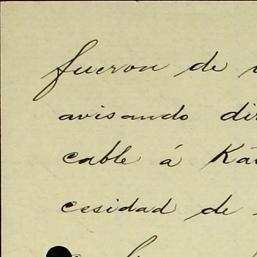 fueron de
avisando
cable á
cesidad de